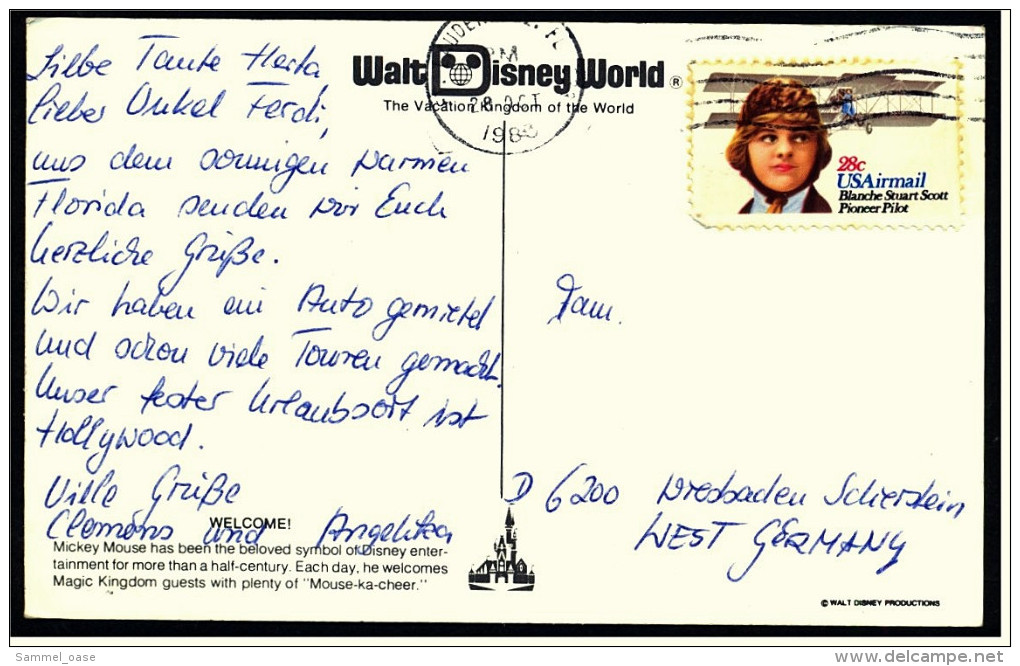 Liebe Tante Herta
lieber Onkel Ferdi,
aus dem sonnigen warmen
Florida senden wir Euch
herzliche Grüße.
Wir haben ein Auto gemietet
und schon viele Touren gemacht.
Unser fester Urlaubsort ist
Hollywood.
Viele Grüße
Clemens und Angelika
WELCOME!
Mickey Mouse has been the beloved symbol of Disney enter-
tainment for more than a half-century. Each day, he welcomes
Magic Kingdom guests with plenty of "Mouse-ka-cheer."
Walt Disney World®
The Vacation Kingdom of the World
PM
28 OCT
198
28c
USAirmail
Blanche Stuart Scott
Pioneer Pilot
Fam.
D 6200 Wiesbaden Schierstein
WEST GERMANY
© WALT DISNEY PRODUCTIONS
Sammel_oase
delcampe.net